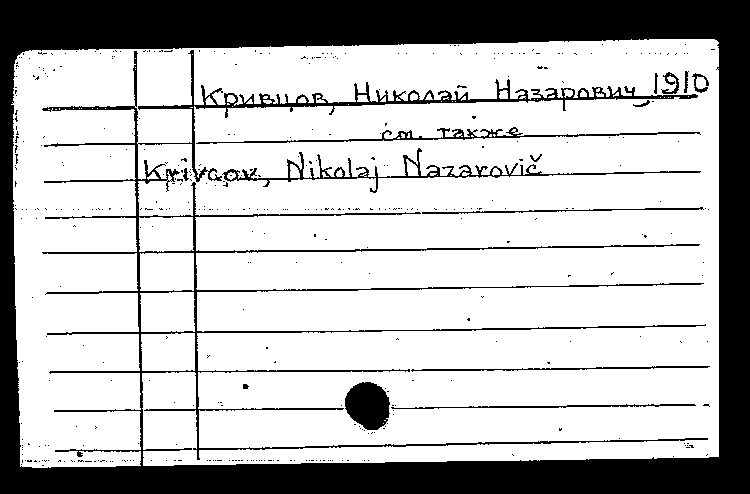 Кривцов, Николай Назарович, 1910
см. также
Krivcov, Nikolaj Nazarovič